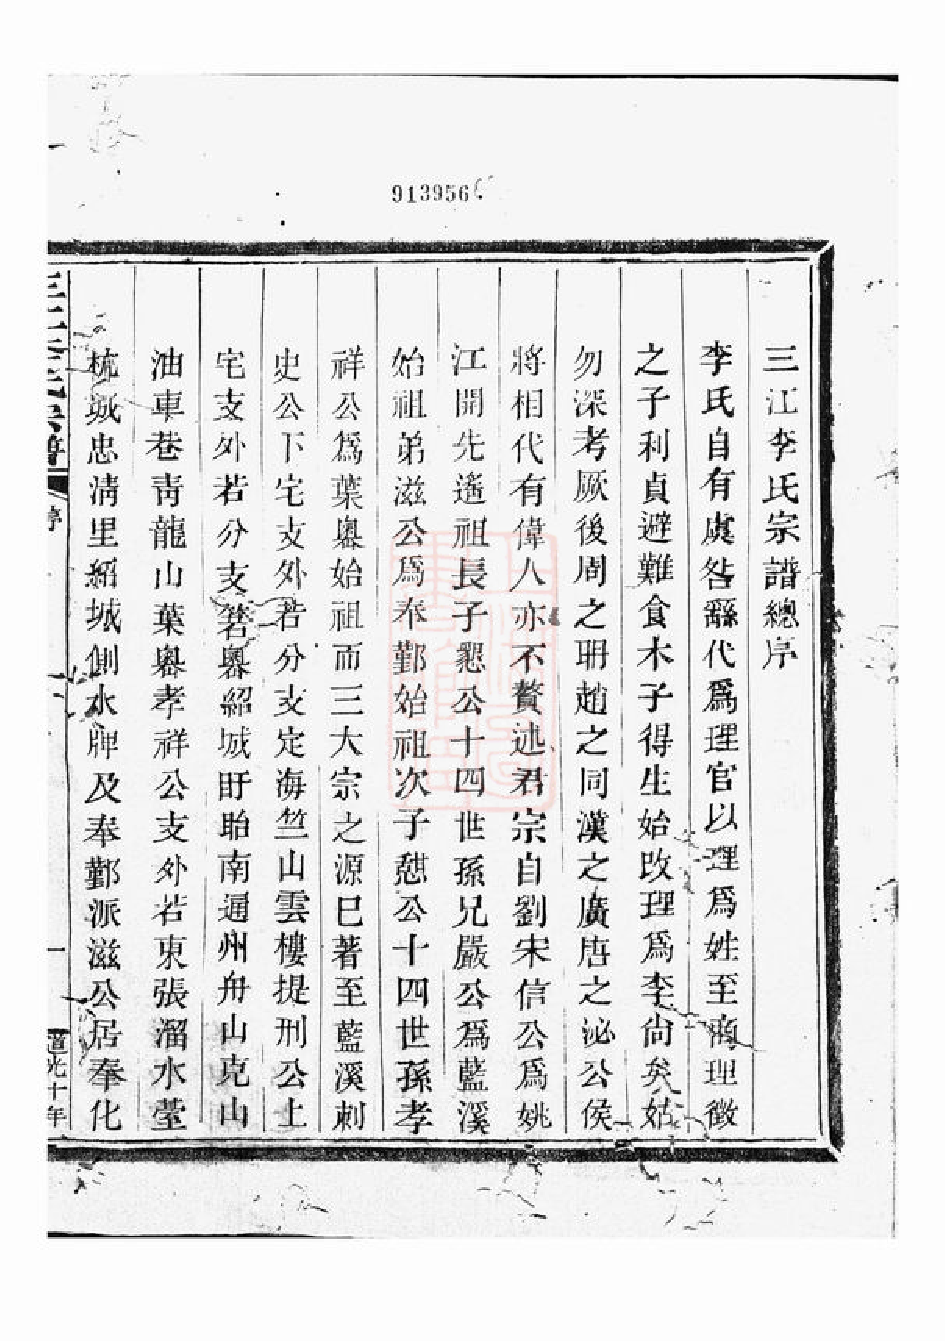 913956
三江李氏宗譜總序
李氏自有虞咎繇代爲理官以理爲姓至商理徵
之子利貞避難食木子得生始改理爲李尙矣姑
勿深考厥後周之耼趙之同漢之廣唐之泌公侯
將相代有偉人亦不贅述君宗自劉宋信公爲姚
江開先遙祖長子懇公十四世孫兄嚴公爲藍溪
始祖弟滋公爲奉鄞始祖次子憇公十四世孫孝
祥公爲葉嶴始祖而三大宗之源巳著至藍溪刺
史公下宅支外若分支定海竺山雲樓提刑公上
宅支外若分支箬嶴紹城盱眙南通州舟山克山
油車巷靑龍山葉嶴孝祥公支外若東張溜水瑩
杭城忠淸里紹城側水牌及奉鄞派滋公居奉化
三江李氏宗譜
序
一
道光十年